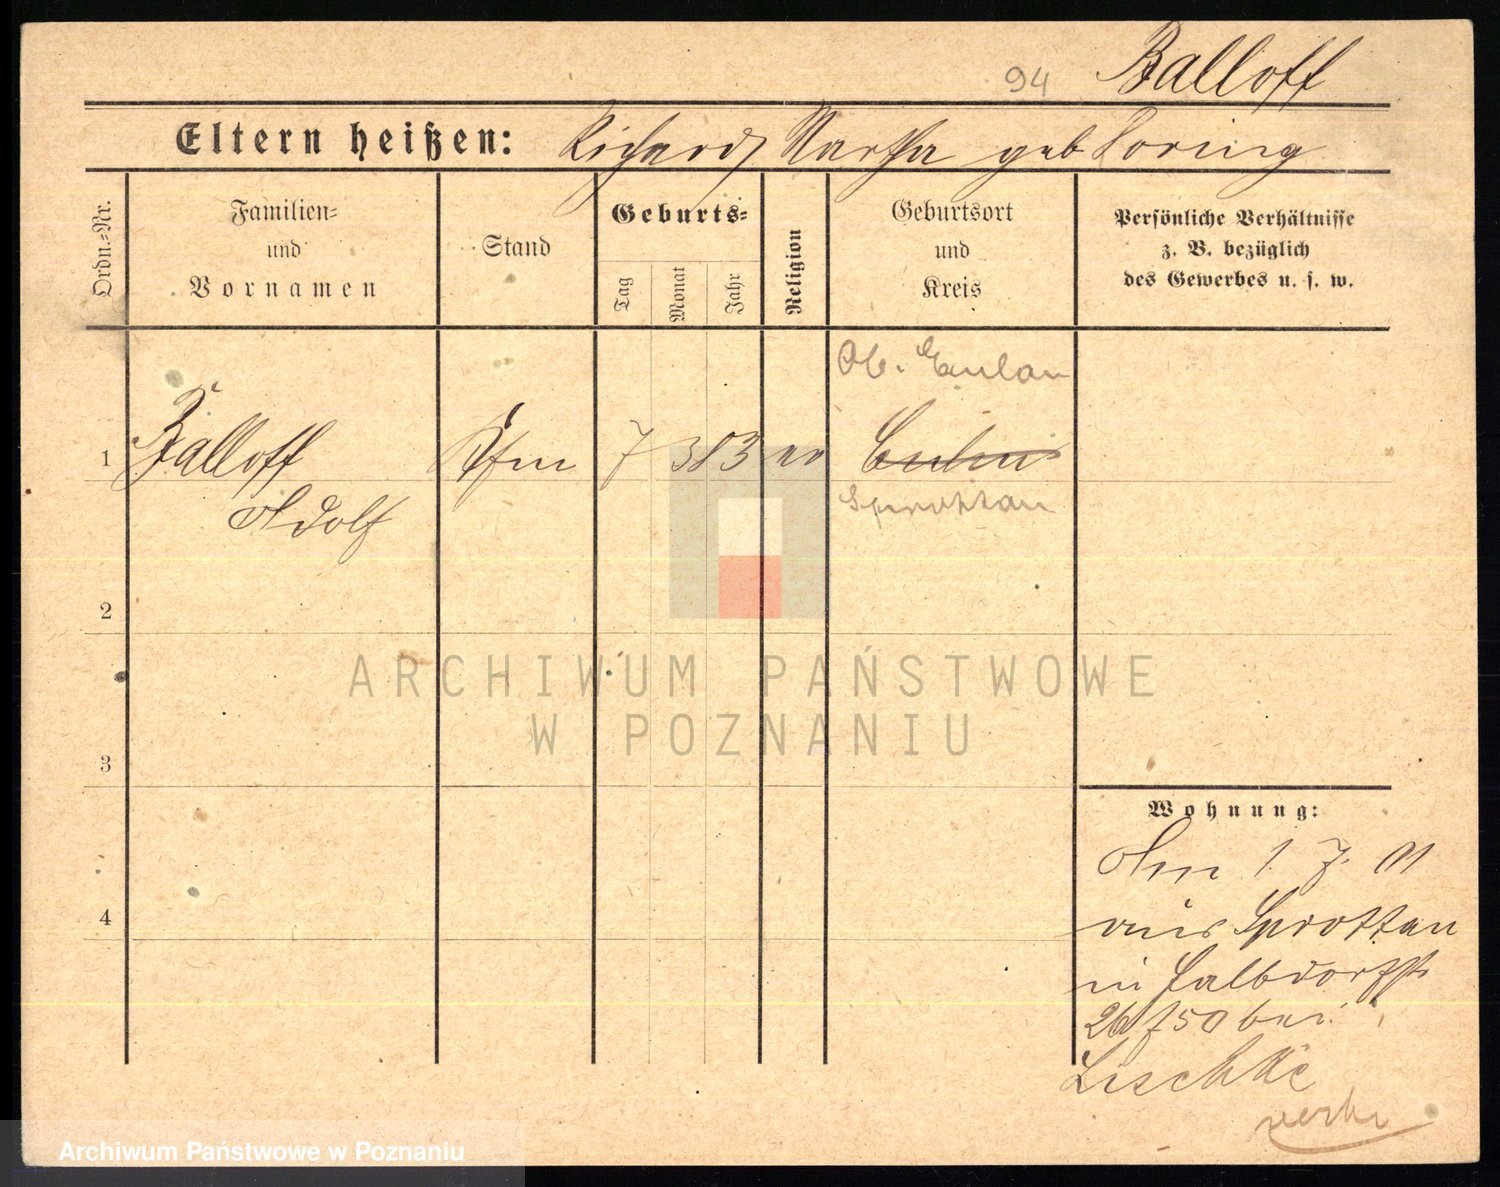 94 Balloff
Eltern heißen: Richard, Martha geb Loring
Ordn.=Nr.
Familien=
und
Vornamen
Stand
Geburts=
Tag
Monat
Jahr
Religion
Geburtsort
und
Kreis
Persönliche Verhältnisse
z. B. bezüglich
des Gewerbes u. s. w.
Ob. Eulau
1 Balloff Kfm 7 3 83 ev Eulau
Adolf
Sprottau
2
ARCHIWUM PAŃSTWOWE
W POZNANIU
3
Wohnung:
Am 1. 7. 01
4
aus Sprottau
in Halbdorfstr
26 bei
Lischke
Archiwum Państwowe w Poznaniu